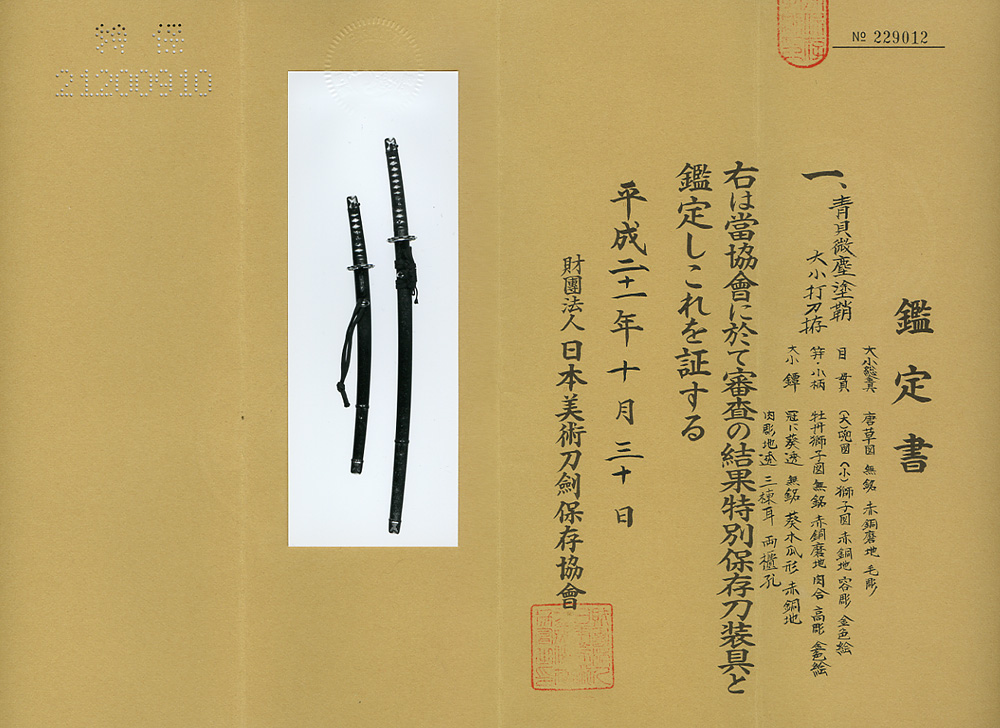 № 229012
鑑定書
一、青貝微塵塗鞘
大小打刀拵
大小総金具 唐草図 無銘 赤銅磨地 毛彫
目貫 (大) 図 (小)獅子図 赤銅地 容彫 金色絵
笄・小柄 牡丹獅子図 無銘 赤銅磨地 肉合 高彫 金色絵
大小鐔 冠に葵透 無銘 葵木瓜形 赤銅地
肉彫地透 三棟耳 両櫃孔
右は當協會に於て審査の結果特別保存刀装具と
鑑定しこれを証する
平成二十一年十月三十日
財團法人 日本美術刀劍保存協會
21200910